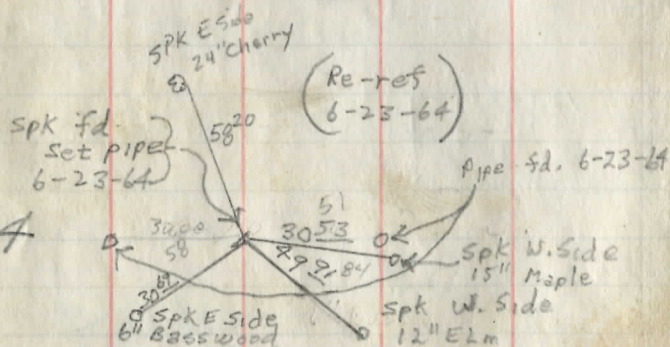 SPK E Side
24" Cherry
(Re-ref
6-23-64)
Spk fd.
Set pipe
6-23-64
58 20
Pipe fd. 6-23-64
51
30 53
30.00
58
49 91 84
Spk W. Side
15" Maple
30 61
Spk E Side
6" Basswood
Spk W. Side
12" Elm